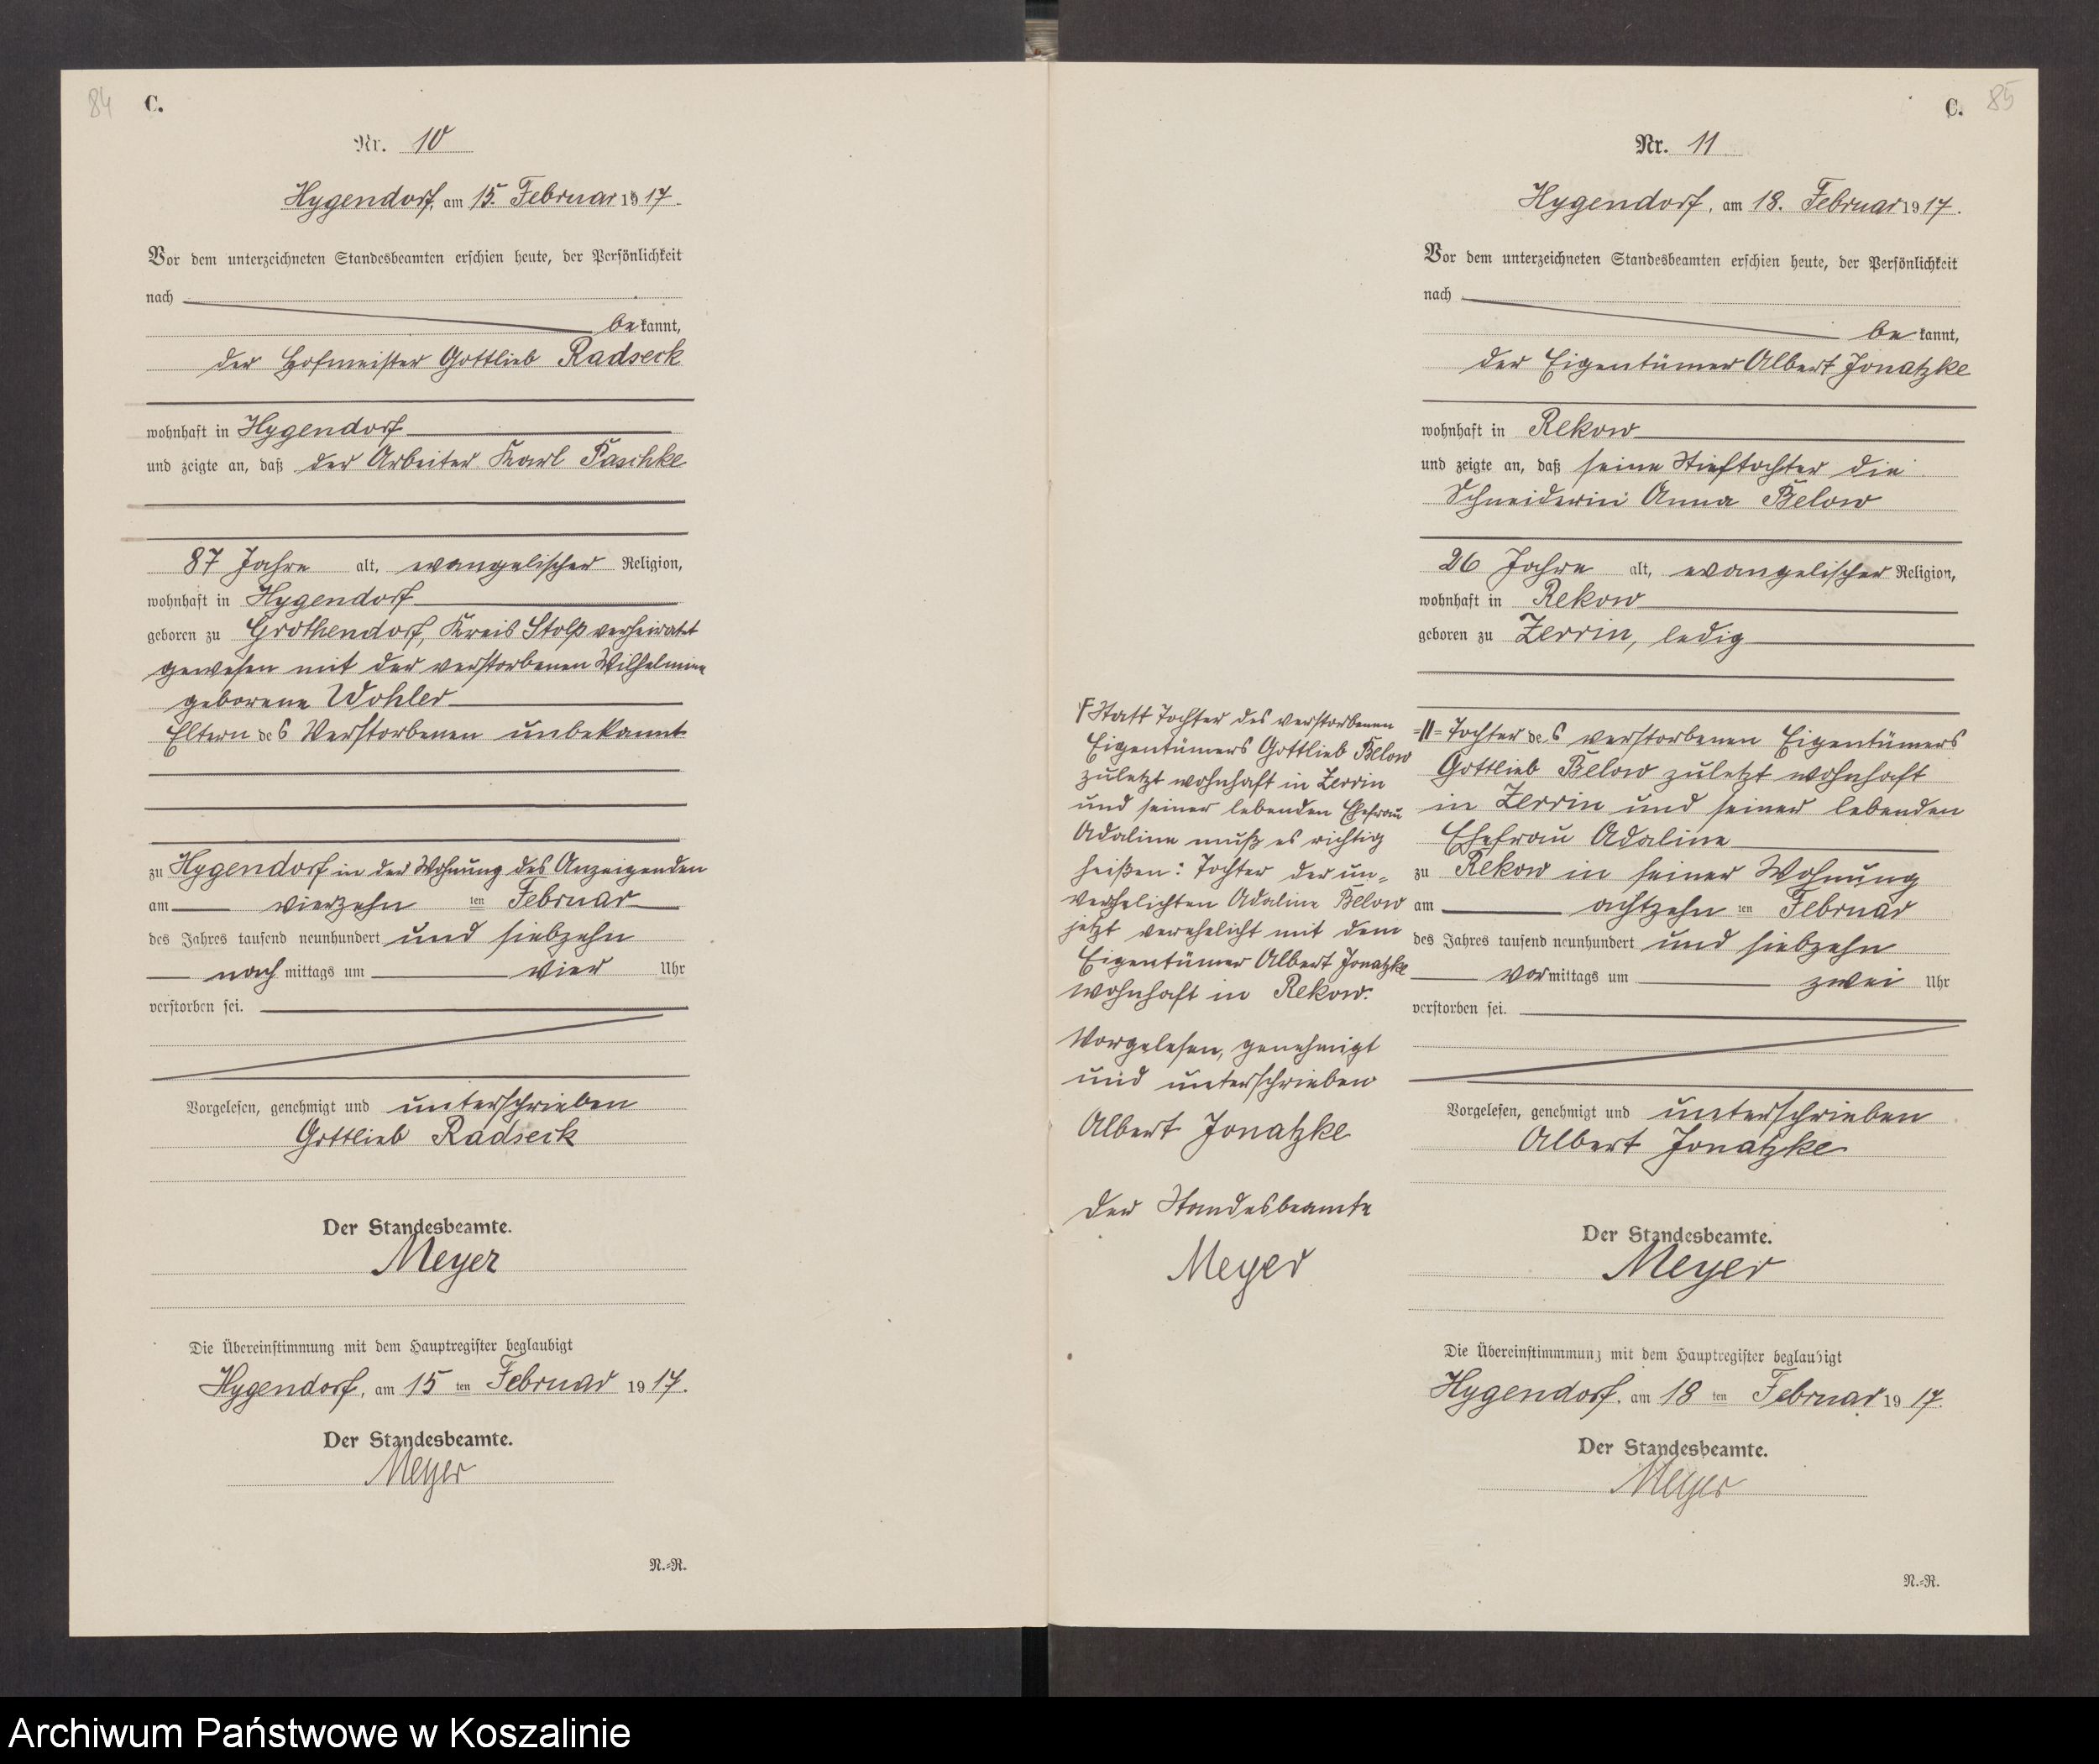 84
C.
Nr. 10
Hygendorf, am 15. Februar 1917.
Vor dem unterzeichneten Standesbeamten erschien heute, der Persönlichkeit
nach
bekannt,
der Hofmeister Gottlieb Radseck
wohnhaft in Hygendorf
und zeigte an, daß der Arbeiter Karl Paschke
87 Jahre alt, evangelischer Religion,
wohnhaft in Hygendorf
geboren zu Grothendorf, Kreis Stolp verheiratet
gewesen mit der verstorbenen Wilhelmine
geborene Wohler
Eltern des Verstorbenen unbekannt
zu Hygendorf in der Wohnung des Anzeigenden
am vierzehn ten Februar
des Jahres tausend neunhundert und siebzehn
nachmittags um vier Uhr
verstorben sei.
Vorgelesen, genehmigt und unterschrieben
Gottlieb Radseck
Der Standesbeamte.
Meyer
Die Übereinstimmung mit dem Hauptregister beglaubigt
Hygendorf, am 15 ten Februar 1917.
Der Standesbeamte.
Meyer
N.-R.
C. 85
Nr. 11
Hygendorf, am 18. Februar 1917.
Vor dem unterzeichneten Standesbeamten erschien heute, der Persönlichkeit
nach
bekannt,
der Eigentümer Albert Jonatzke
wohnhaft in Rekow
und zeigte an, daß seine Stieftochter die
Schneiderin Anna Below
26 Jahre alt, evangelischer Religion,
wohnhaft in Rekow
geboren zu Zerrin, ledig
=//= Tochter des verstorbenen Eigentümers
Gottlieb Below zuletzt wohnhaft
in Zerrin und seiner lebenden
Ehefrau Adaline
zu Rekow in seiner Wohnung
am achtzehn ten Februar
des Jahres tausend neunhundert und siebzehn
vormittags um zwei Uhr
verstorben sei.
Vorgelesen, genehmigt und unterschrieben
Albert Jonatzke
Der Standesbeamte.
Meyer
Die Übereinstimmmung mit dem Hauptregister beglaubigt
Hygendorf. am 18 ten Februar 1917.
Der Standesbeamte.
Meyer
N.-R.
Statt Tochter des verstorbenen
Eigentümers Gottlieb Below
zuletzt wohnhaft in Zerrin
und seiner lebenden Ehefrau
Adaline muß es richtig
heißen: Tochter der un-
verehelichten Adaline Below
jetzt verehelicht mit dem
Eigentümer Albert Jonatzke
wohnhaft in Rekow.
Vorgelesen, genehmigt
und unterschrieben
Albert Jonatzke
Der Standesbeamte
Meyer
Archiwum Państwowe w Koszalinie